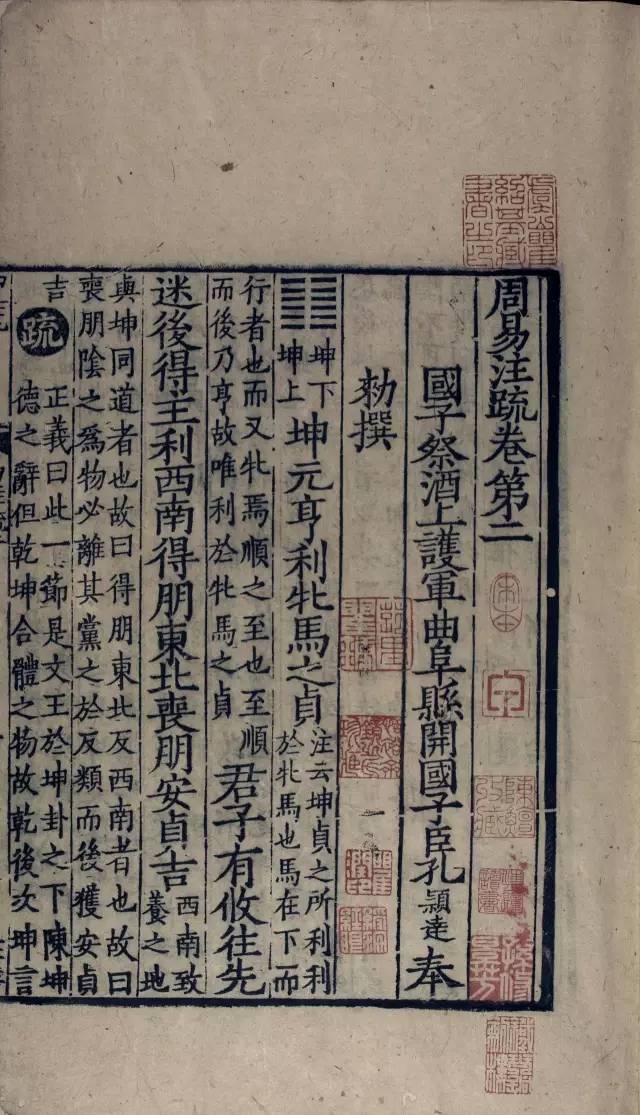 周易注疏卷第二
國子祭酒上護軍曲阜縣開國子臣孔穎達奉
勑撰
坤下
坤上
坤元亨利牝馬之貞
注云坤貞之所利利
於牝馬也馬在下而
行者也而又牝焉順之至也至順
而後乃亨故唯利於牝馬之貞
君子有攸往先
迷後得主利西南得朋東北喪朋安貞吉
西南致
養之地
與坤同道者也故曰得朋東北反西南者也故曰
喪朋陰之爲物必離其黨之於反類而後獲安貞
吉
疏
正義曰此一節是文王於坤卦之下陳坤
德之辭但乾坤合體之物故乾後次坤言